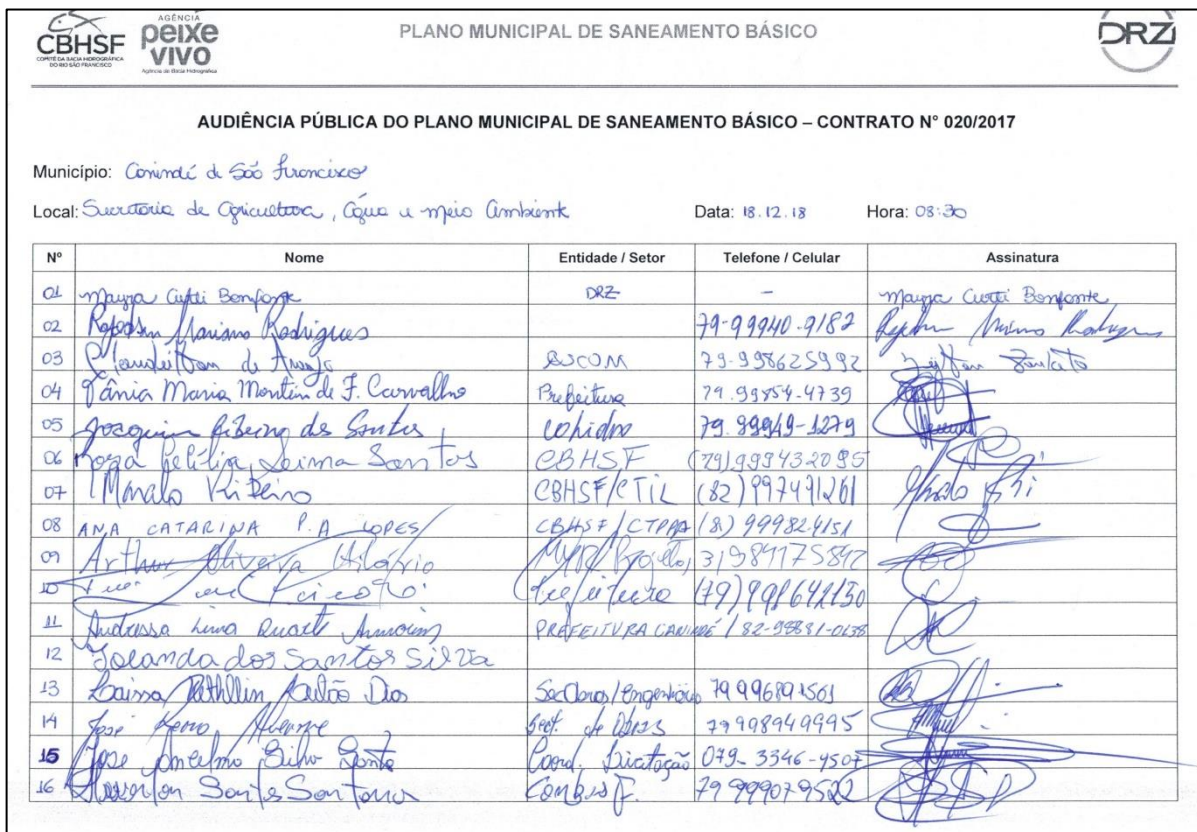 CBHSF
COMITÊ DA BACIA HIDROGRÁFICA
DO RIO SÃO FRANCISCO
AGÊNCIA
peixe
vivo
Agência de Bacia Hidrográfica
PLANO MUNICIPAL DE SANEAMENTO BÁSICO
DRZ
AUDIÊNCIA PÚBLICA DO PLANO MUNICIPAL DE SANEAMENTO BÁSICO – CONTRATO N° 020/2017
Município: Canindé de São Francisco
Local: Secretaria de Agricultura, Água e meio Ambiente Data: 18.12.18 Hora: 08:30
Nº Nome Entidade / Setor Telefone / Celular Assinatura
01 Mayra Curti Bonfante DRZ - Mayra Curti Bonfante
02 Mariano Rodrigues 79-99940-9182
03 de Araujo 79-998625992
04 Tânia Maria Montin de F. Carvalho Prefeitura 79.99854-4739
05 Joaquim Ribeiro dos Santos Cohidro 79.99949-1279
06 Rosa Cecília Lima Santos CBHSF (79)999432095
07 Ribeiro CBHSF/CTIL (82)997491261
08 ANA CATARINA P. A LOPES CBHSF/CTPPP (81) 999824151
09 Arthur Oliveira Hilário 31984175842
10 Prefeitura (79)998642150
11 Andressa Lima Duarte Amorim PREFEITURA CANINDÉ / 82-98881-0638
12 Iolanda dos Santos Silva
13 Kathllin Dias Sec Obras/Engenharia 79 996891501
14 José Sect. de Obras 79998949995
15 Jose Anselmo Silva Santos Coord. Licitação 079-3346-9507
16 Santos Santana 79 999079522